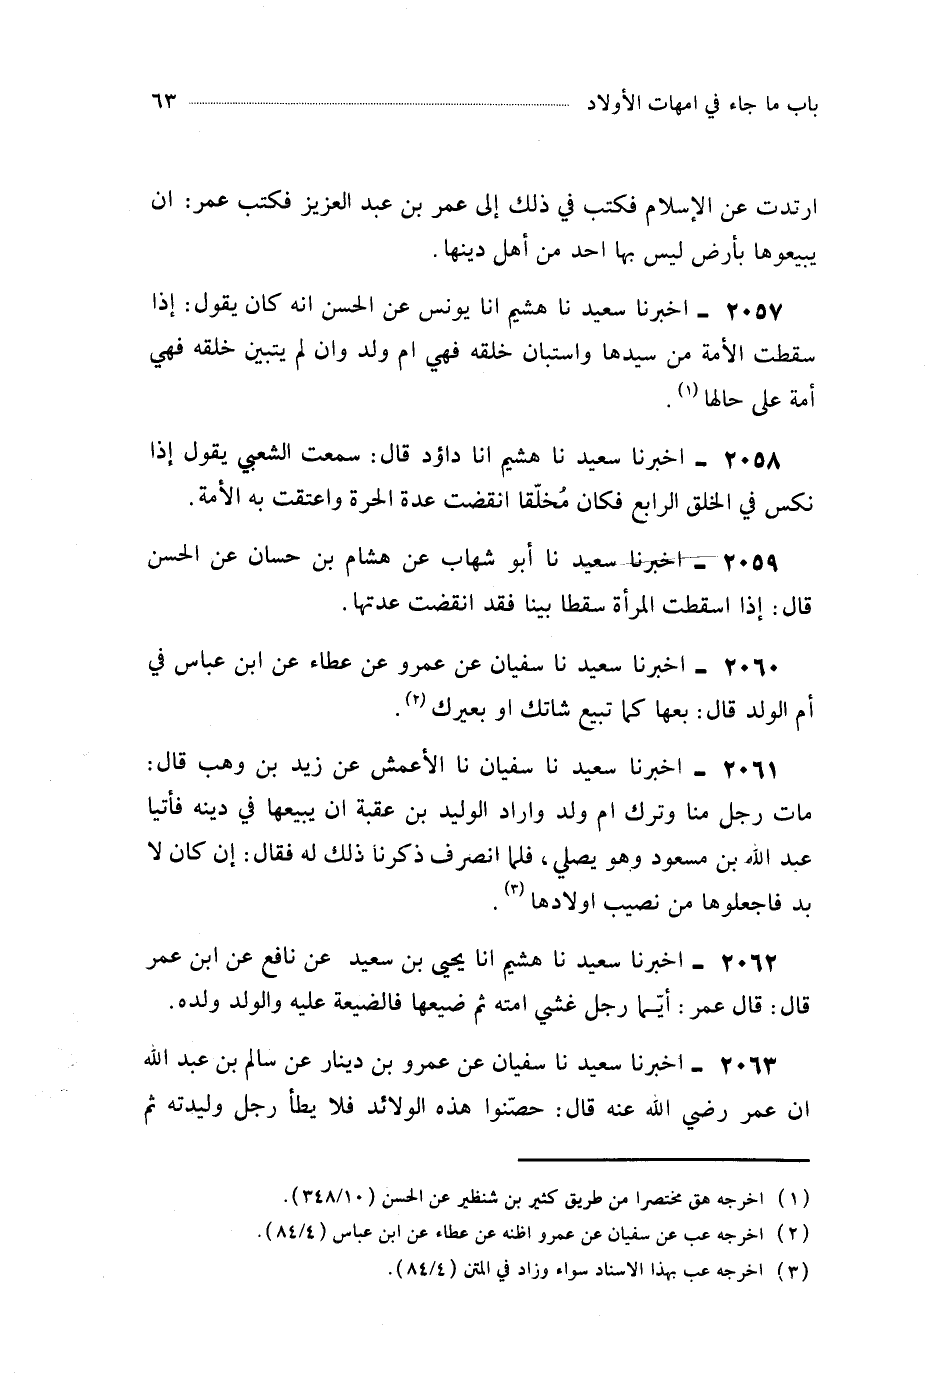 باب ما جاء في امهات الأولاد ٦٣
ارتدت عن الإسلام فكتب في ذلك إلى عمر بن عبد العزيز فكتب عمر: ان
يبيعوها بأرض ليس بها احد من أهل دينها.
٢٠٥٧ ـ اخبرنا سعيد نا هشيم انا يونس عن الحسن انه كان يقول: إذا
سقطت الأمة من سيدها واستبان خلقه فهي ام ولد وان لم يتبين خلقه فهي
أمة على حالها (١).
٢٠٥٨ ـ اخبرنا سعيد نا هشيم انا داؤد قال: سمعت الشعبي يقول إذا
نكس في الخلق الرابع فكان مُخلّقا انقضت عدة الحرة واعتقت به الأمة.
٢٠٥٩ ـ اخبرنا سعيد نا أبو شهاب عن هشام بن حسان عن الحسن
قال: إذا اسقطت المرأة سقطا بينا فقد انقضت عدتها.
٢٠٦٠ ـ اخبرنا سعيد نا سفيان عن عمرو عن عطاء عن ابن عباس في
أم الولد قال: بعها كما تبيع شاتك او بعيرك (٢).
٢٠٦١ ـ اخبرنا سعيد نا سفيان نا الأعمش عن زيد بن وهب قال:
مات رجل منا وترك ام ولد واراد الوليد بن عقبة ان يبيعها في دينه فأتيا
عبد الله بن مسعود وهو يصلي، فلما انصرف ذكرنا ذلك له فقال: إن كان لا
بد فاجعلوها من نصيب اولادها (٣).
٢٠٦٢ ـ اخبرنا سعيد نا هشيم انا يحيى بن سعيد عن نافع عن ابن عمر
قال: قال عمر: أيّما رجل غشي امته ثم ضيعها فالضيعة عليه والولد ولده.
٢٠٦٣ ـ اخبرنا سعيد نا سفيان عن عمرو بن دينار عن سالم بن عبد الله
ان عمر رضي الله عنه قال: حصّنوا هذه الولائد فلا يطأ رجل وليدته ثم
(١) اخرجه هق مختصرا من طريق كثير بن شنظير عن الحسن (٣٤٨/١٠).
(٢) اخرجه عب عن سفيان عن عمرو اظنه عن عطاء عن ابن عباس (٨٤/٤).
(٣) اخرجه عب بهذا الاسناد سواء وزاد في المتن (٨٤/٤).